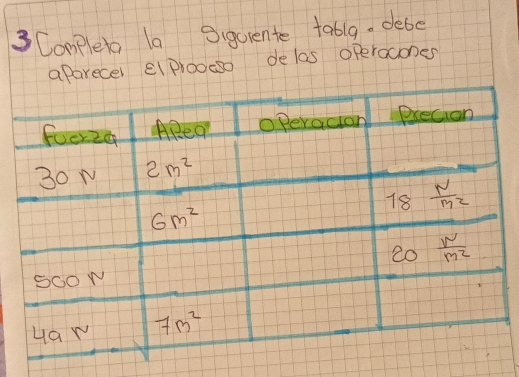 3 Completa la siguiente tabla. debe
aparecer el proceso de las operaciones
Fuerza Area operacion Precion
30 N 2 m²
6 m² 18 N/m²
500 N 20 N/m²
49 N 7 m²